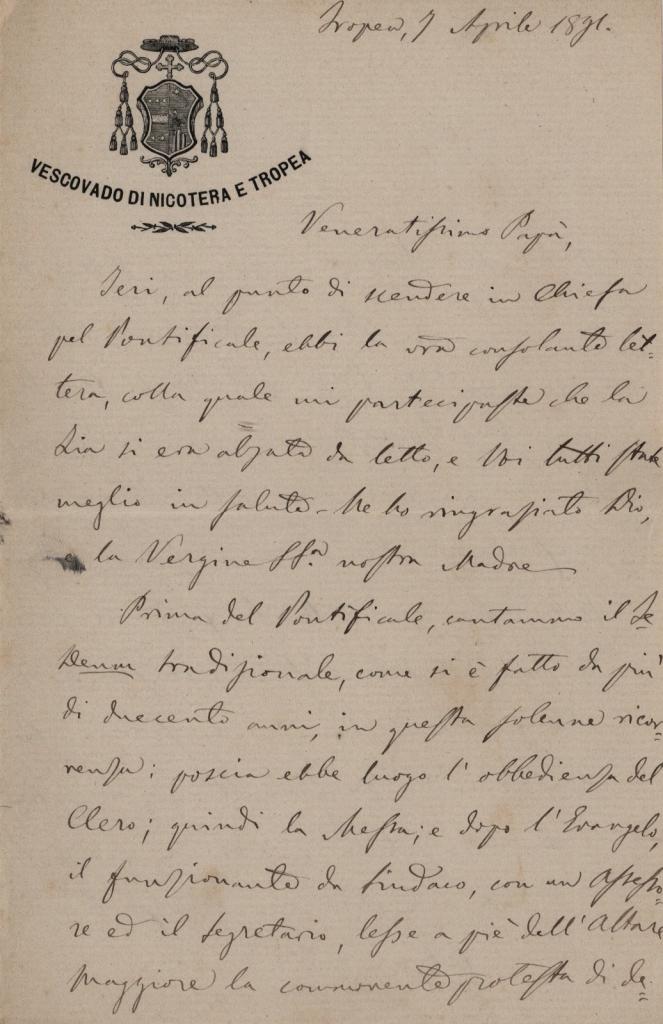 Tropea, 7 Aprile 1891.
VESCOVADO DI NICOTERA E TROPEA
Veneratissimo Papà,
Ieri, al punto di scendere in Chiesa
pel Pontificale, ebbi la vra consolante let=
tera, colla quale mi partecipaste che la
Zia si era alzata da letto, e Voi tutti state
meglio in salute – Ne ho ringraziato Dio,
e la Vergine SSa nostra Madre
Prima del Pontificale, cantammo il Te
Deum tradizionale, come si è fatto da più
di duecento anni, in questa solenne ricor=
renza; poscia ebbe luogo l'obbedienza del
Clero; quindi la Messa; e dopo l'Evangelo,
il funzionante da Sindaco, con un assesso=
re ed il segretario, lesse a piè dell'Altare
Maggiore la commovente protesta di de=